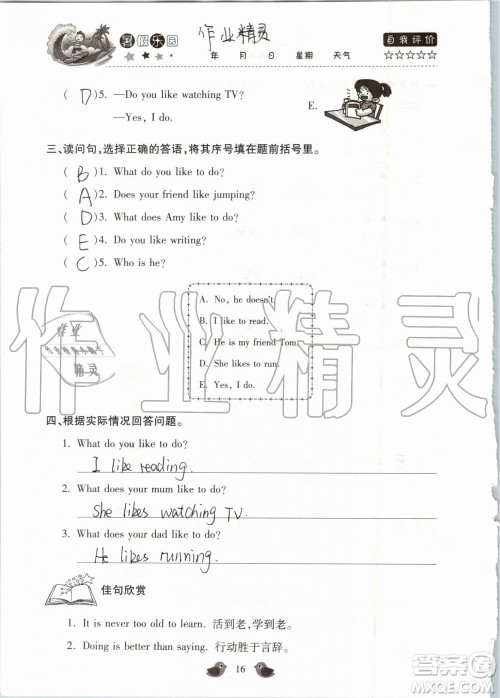 暑假乐园 作业精灵 自我评价
年 月 日 星期 天气 ☆☆☆☆☆
( D )5. —Do you like watching TV?
—Yes, I do.
E.
三、读问句,选择正确的答语,将其序号填在题前括号里。
( B )1. What do you like to do?
( A )2. Does your friend like jumping?
( D )3. What does Amy like to do?
( E )4. Do you like writing?
( C )5. Who is he?
A. No, he doesn't.
B. I like to read.
C. He is my friend Tom.
D. She likes to run.
E. Yes, I do.
作业精灵
作业精灵
四、根据实际情况回答问题。
1. What do you like to do?
I like reading.
2. What does your mum like to do?
She likes watching TV.
3. What does your dad like to do?
He likes running.
佳句欣赏
1. It is never too old to learn. 活到老,学到老。
2. Doing is better than saying. 行动胜于言辞。
16
答案圈
MXQE.COM